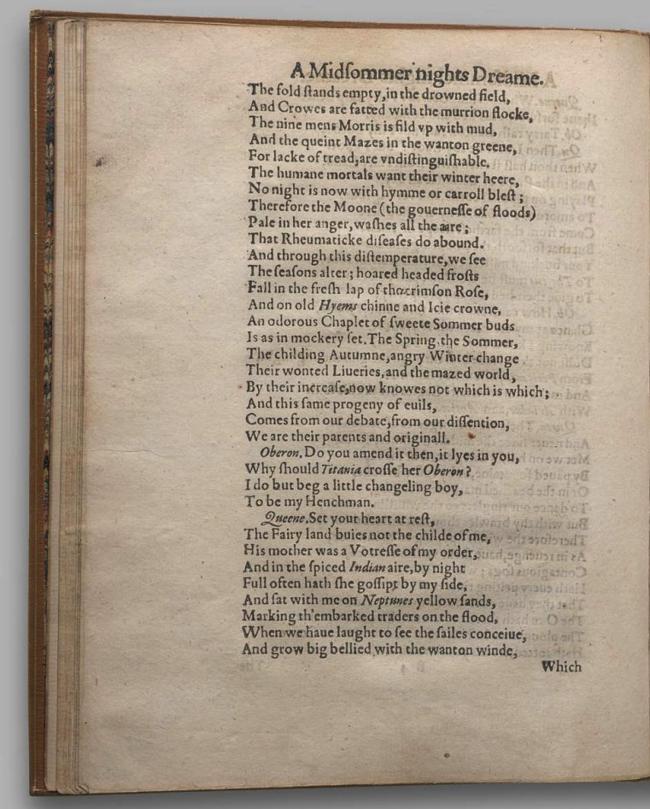 A Midſommer nights Dreame.
The fold ſtands empty, in the drowned field,
And Crowes are fatted with the murrion flocke,
The nine mens Morris is fild vp with mud,
And the queint Mazes in the wanton greene,
For lacke of tread, are vndiſtinguiſhable.
The humane mortals want their winter heere,
No night is now with hymme or carroll bleſt;
Therefore the Moone (the gouerneſſe of floods)
Pale in her anger, waſhes all the aire;
That Rheumaticke diſeaſes do abound.
And through this diſtemperature, we ſee
The ſeaſons alter; hoared headed froſts
Fall in the freſh lap of the crimſon Roſe,
And on old Hyems chinne and Icie crowne,
An odorous Chaplet of ſweete Sommer buds
Is as in mockery ſet. The Spring, the Sommer,
The childing Autumne, angry Winter change
Their wonted Liueries, and the mazed world,
By their increaſe, now knowes not which is which;
And this ſame progeny of euils,
Comes from our debate, from our diſſention,
We are their parents and originall.
Oberon. Do you amend it then, it lyes in you,
Why ſhould Titania croſſe her Oberon?
I do but beg a little changeling boy,
To be my Henchman.
Queene. Set your heart at reſt,
The Fairy land buies not the childe of me,
His mother was a Votreſſe of my order,
And in the ſpiced Indian aire, by night
Full often hath ſhe goſſipt by my ſide,
And ſat with me on Neptunes yellow ſands,
Marking th'embarked traders on the flood,
When we haue laught to ſee the ſailes conceiue,
And grow big bellied with the wanton winde,
Which